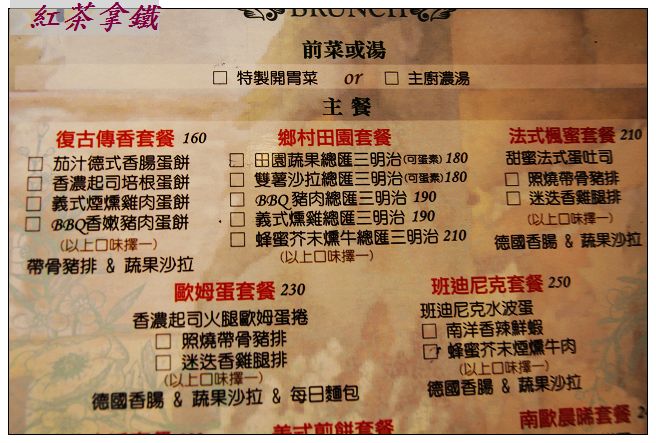 紅茶拿鐵
BRUNCH
前菜或湯
□ 特製開胃菜 or □ 主廚濃湯
主餐
復古傳香套餐 160
□ 茄汁德式香腸蛋餅
□ 香濃起司培根蛋餅
□ 義式煙燻雞肉蛋餅
□ BBQ香嫩豬肉蛋餅
(以上口味擇一)
帶骨豬排 & 蔬果沙拉
鄉村田園套餐
□ 田園蔬果總匯三明治(可蛋素) 180
□ 雙薯沙拉總匯三明治(可蛋素) 180
□ BBQ豬肉總匯三明治 190
□ 義式燻雞總匯三明治 190
□ 蜂蜜芥末燻牛總匯三明治 210
(以上口味擇一)
法式楓蜜套餐 210
甜蜜法式蛋吐司
□ 照燒帶骨豬排
□ 迷迭香雞腿排
(以上口味擇一)
德國香腸 & 蔬果沙拉
歐姆蛋套餐 230
香濃起司火腿歐姆蛋捲
□ 照燒帶骨豬排
□ 迷迭香雞腿排
(以上口味擇一)
德國香腸 & 蔬果沙拉 & 每日麵包
班迪尼克套餐 250
班迪尼克水波蛋
□ 南洋香辣鮮蝦
□ 蜂蜜芥末煙燻牛肉
(以上口味擇一)
德國香腸 & 蔬果沙拉
義式煎餅套餐
南歐晨晞套餐